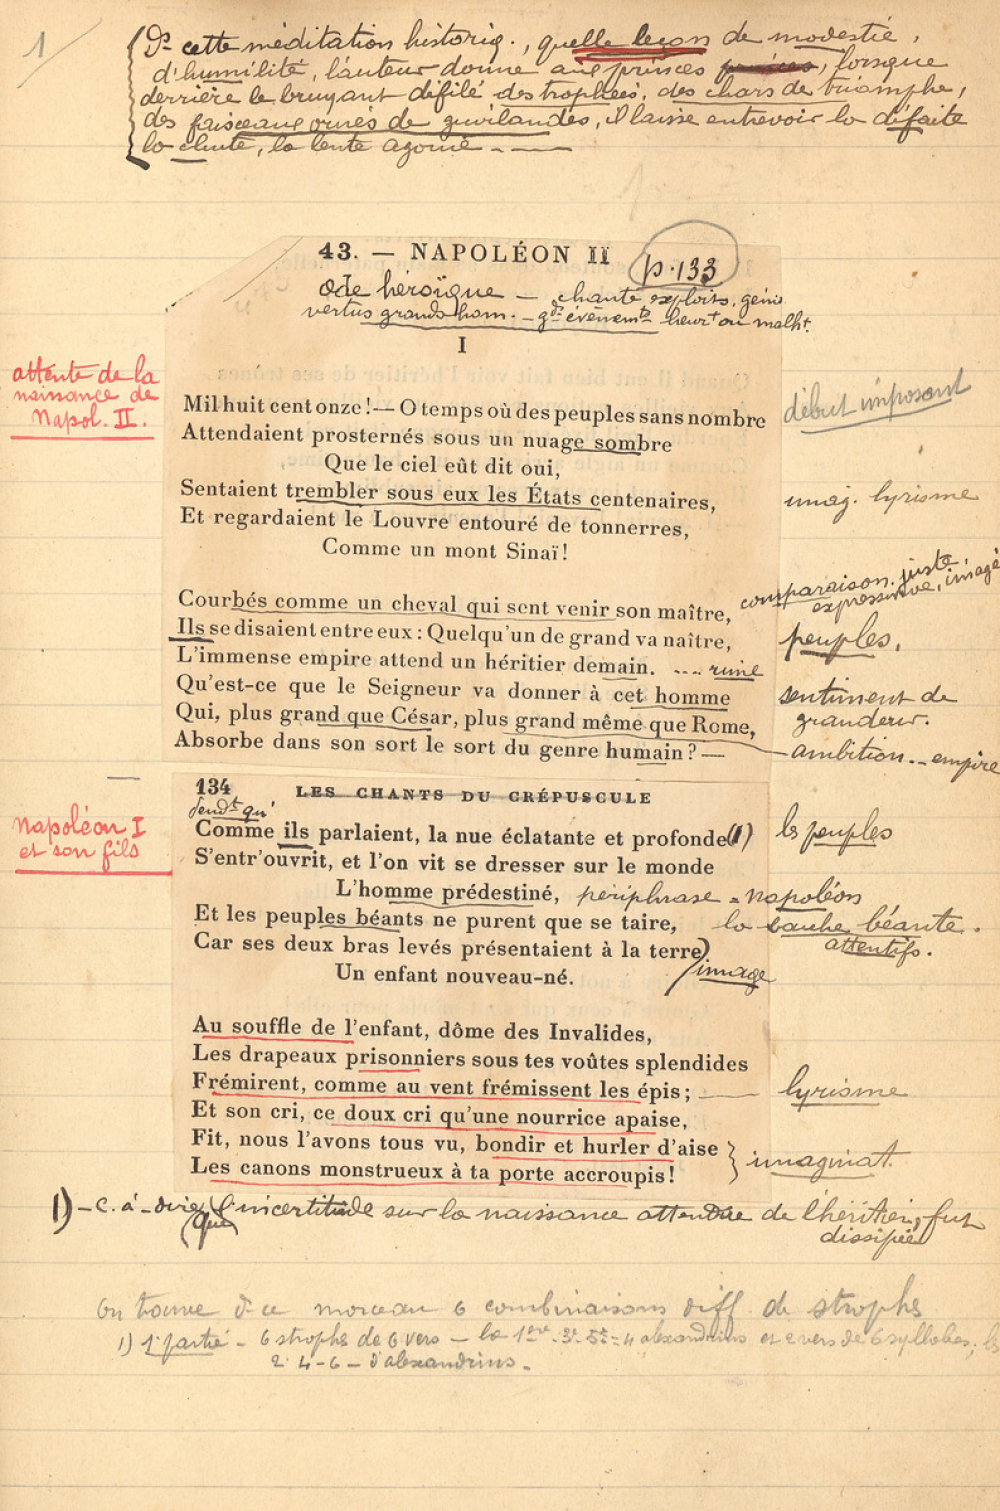 1
Ds cette méditation historiq., quelle leçon de modestie,
d'humilité, l'auteur donne aux princes, lorsque
derrière le bruyant défilé des trophées, des chars de triomphe,
des faisceaux ornés de guirlandes, il laisse entrevoir la défaite
la chute, la lente agonie - - —
43. — NAPOLÉON II
p. 133
ode héroïque — chante exploits, génie
vertus grands hom. - gds évènemts heurt ou malht.
I
attente de la
naissance de
Napol. II.
Mil huit cent onze ! — O temps où des peuples sans nombre
début imposant
Attendaient prosternés sous un nuage sombre
Que le ciel eût dit oui,
Sentaient trembler sous eux les États centenaires,
imag. lyrisme
Et regardaient le Louvre entouré de tonnerres,
Comme un mont Sinaï !
Courbés comme un cheval qui sent venir son maître,
comparaison juste,
expressive, imagé
Ils se disaient entre eux : Quelqu'un de grand va naître,
peuples.
L'immense empire attend un héritier demain. .... rime
Qu'est-ce que le Seigneur va donner à cet homme
sentiment de
grandeur.
Qui, plus grand que César, plus grand même que Rome,
— ambition - - empire
Absorbe dans son sort le sort du genre humain ? —
134 LES CHANTS DU CRÉPUSCULE
Napoléon I
et son fils
pendt qu'
Comme ils parlaient, la nue éclatante et profonde (1)
les peuples
S'entr'ouvrit, et l'on vit se dresser sur le monde
L'homme prédestiné, périphrase = Napoléon
Et les peuples béants ne purent que se taire,
la bouche béante.
attentifs.
Car ses deux bras levés présentaient à la terre)
image
Un enfant nouveau-né.
Au souffle de l'enfant, dôme des Invalides,
Les drapeaux prisonniers sous tes voûtes splendides
Frémirent, comme au vent frémissent les épis ; — lyrisme
Et son cri, ce doux cri qu'une nourrice apaise,
Fit, nous l'avons tous vu, bondir et hurler d'aise
} imaginat.
Les canons monstrueux à ta porte accroupis !
1) - c. à - dire (que) l'incertitude sur la naissance attendue de l'héritier, fut
dissipée
On trouve ds ce morceau 6 combinaisons diff. de strophes
1) 1e partie - 6 strophes de 6 vers - la 1ère - 3e 5e = 4 alexandrins et 2 vers de 6 syllabes ; les
2. 4 - 6 - d'alexandrins.